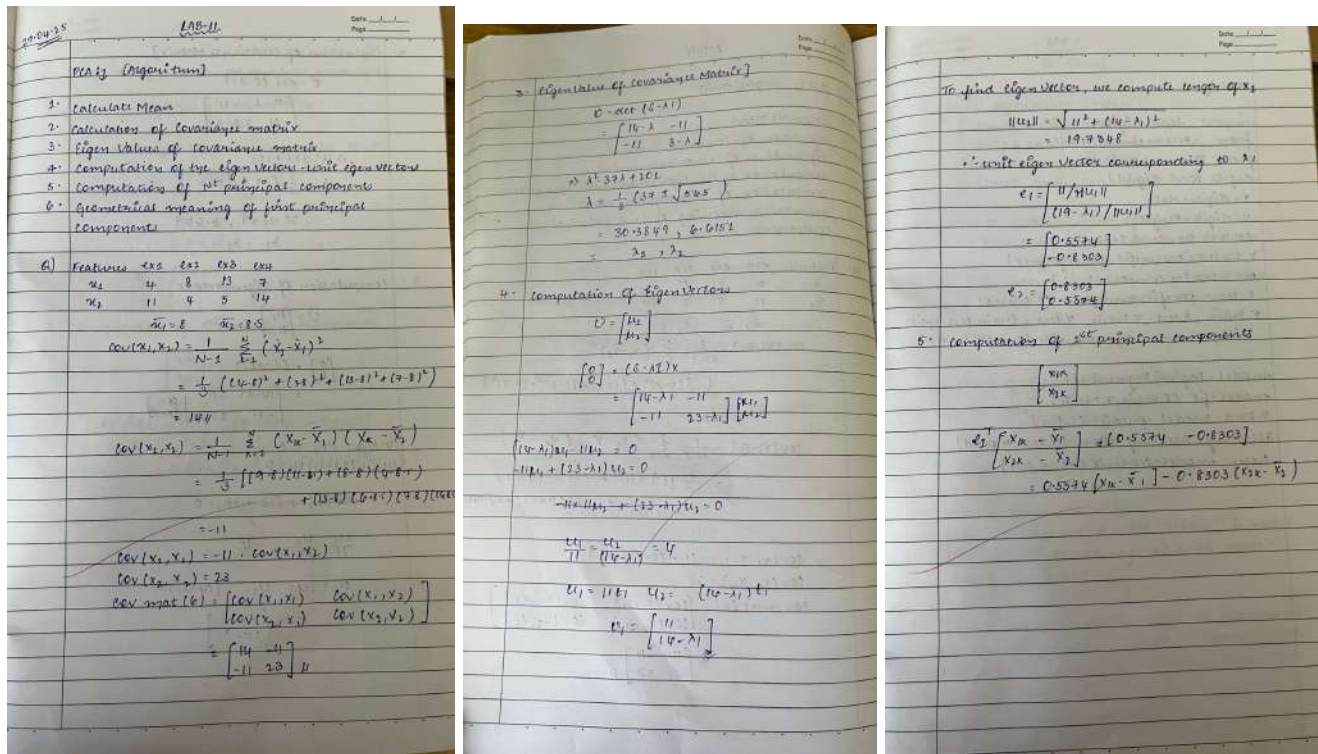 29.04.25
LAB-11
Date __/__/__
Page ____
PCA :) [Algorithm]
1. Calculate Mean
2. Calculation of Covariance matrix
3. Eigen Values of covariance matrix
4. Computation of the eigen vectors - unit eigen vectors
5. Computation of 1st principal components
6. Geometrical meaning of first principal
components
Q) Features ex1 ex2 ex3 ex4
x1 4 8 13 7
x2 11 4 5 14
x̄1 = 8 x̄2 = 8.5
= 14 //
= -11
cov(x2, x1) = -11 . cov(x1, x2)
cov(x2, x2) = 23
cov mat (6) = [cov(x1, x1) cov(x1, x2)
cov(x2, x1) cov(x2, x2)]
= [14 -11
-11 23] //
Date __/__/__
Page ____
3. Eigen Value of Covariance Matrix]
= [14-λ -11
-11 3-λ]
⇒ λ² 37λ + 201
= 30.3849, 6.6151
= λ1, λ2
4. Computation of Eigen Vectors
= [14-λ1 -11
-11 23-λ1]
(14-λ1)u1 - 11u2 = 0
-11u1 + (23-λ1)u2 = 0
u1/11 = u2/(14-λ1)
u1 = 11t1 u2 = (14-λ1)t1
[11
14-λ1]
Date __/__/__
Page ____
To find eigen vector, we compute length of x1
||u1|| = √11² + (14-λ1)²
= 19.7348
∴ unit eigen vector corresponding to λ1
e1 = [11/||u1||
(19-λ1)/||u1||]
= [0.5574
-0.8303]
e2 = [0.8303
0.5574]
5. Computation of 1st principal components
[x1k
x2k]
e1ᵀ [x1k - x̄1
x2k - x̄2] = [0.5574 -0.8303]
= 0.5574 [x1k - x̄1] - 0.8303 (x2k - x̄2)